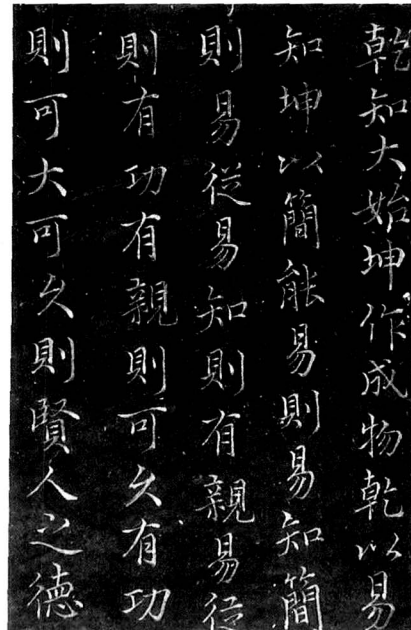 乾知大始坤作成物乾以易
知坤以簡能易則易知簡
則易從易知則有親易從
則有功有親則可久有功
則可大可久則賢人之德